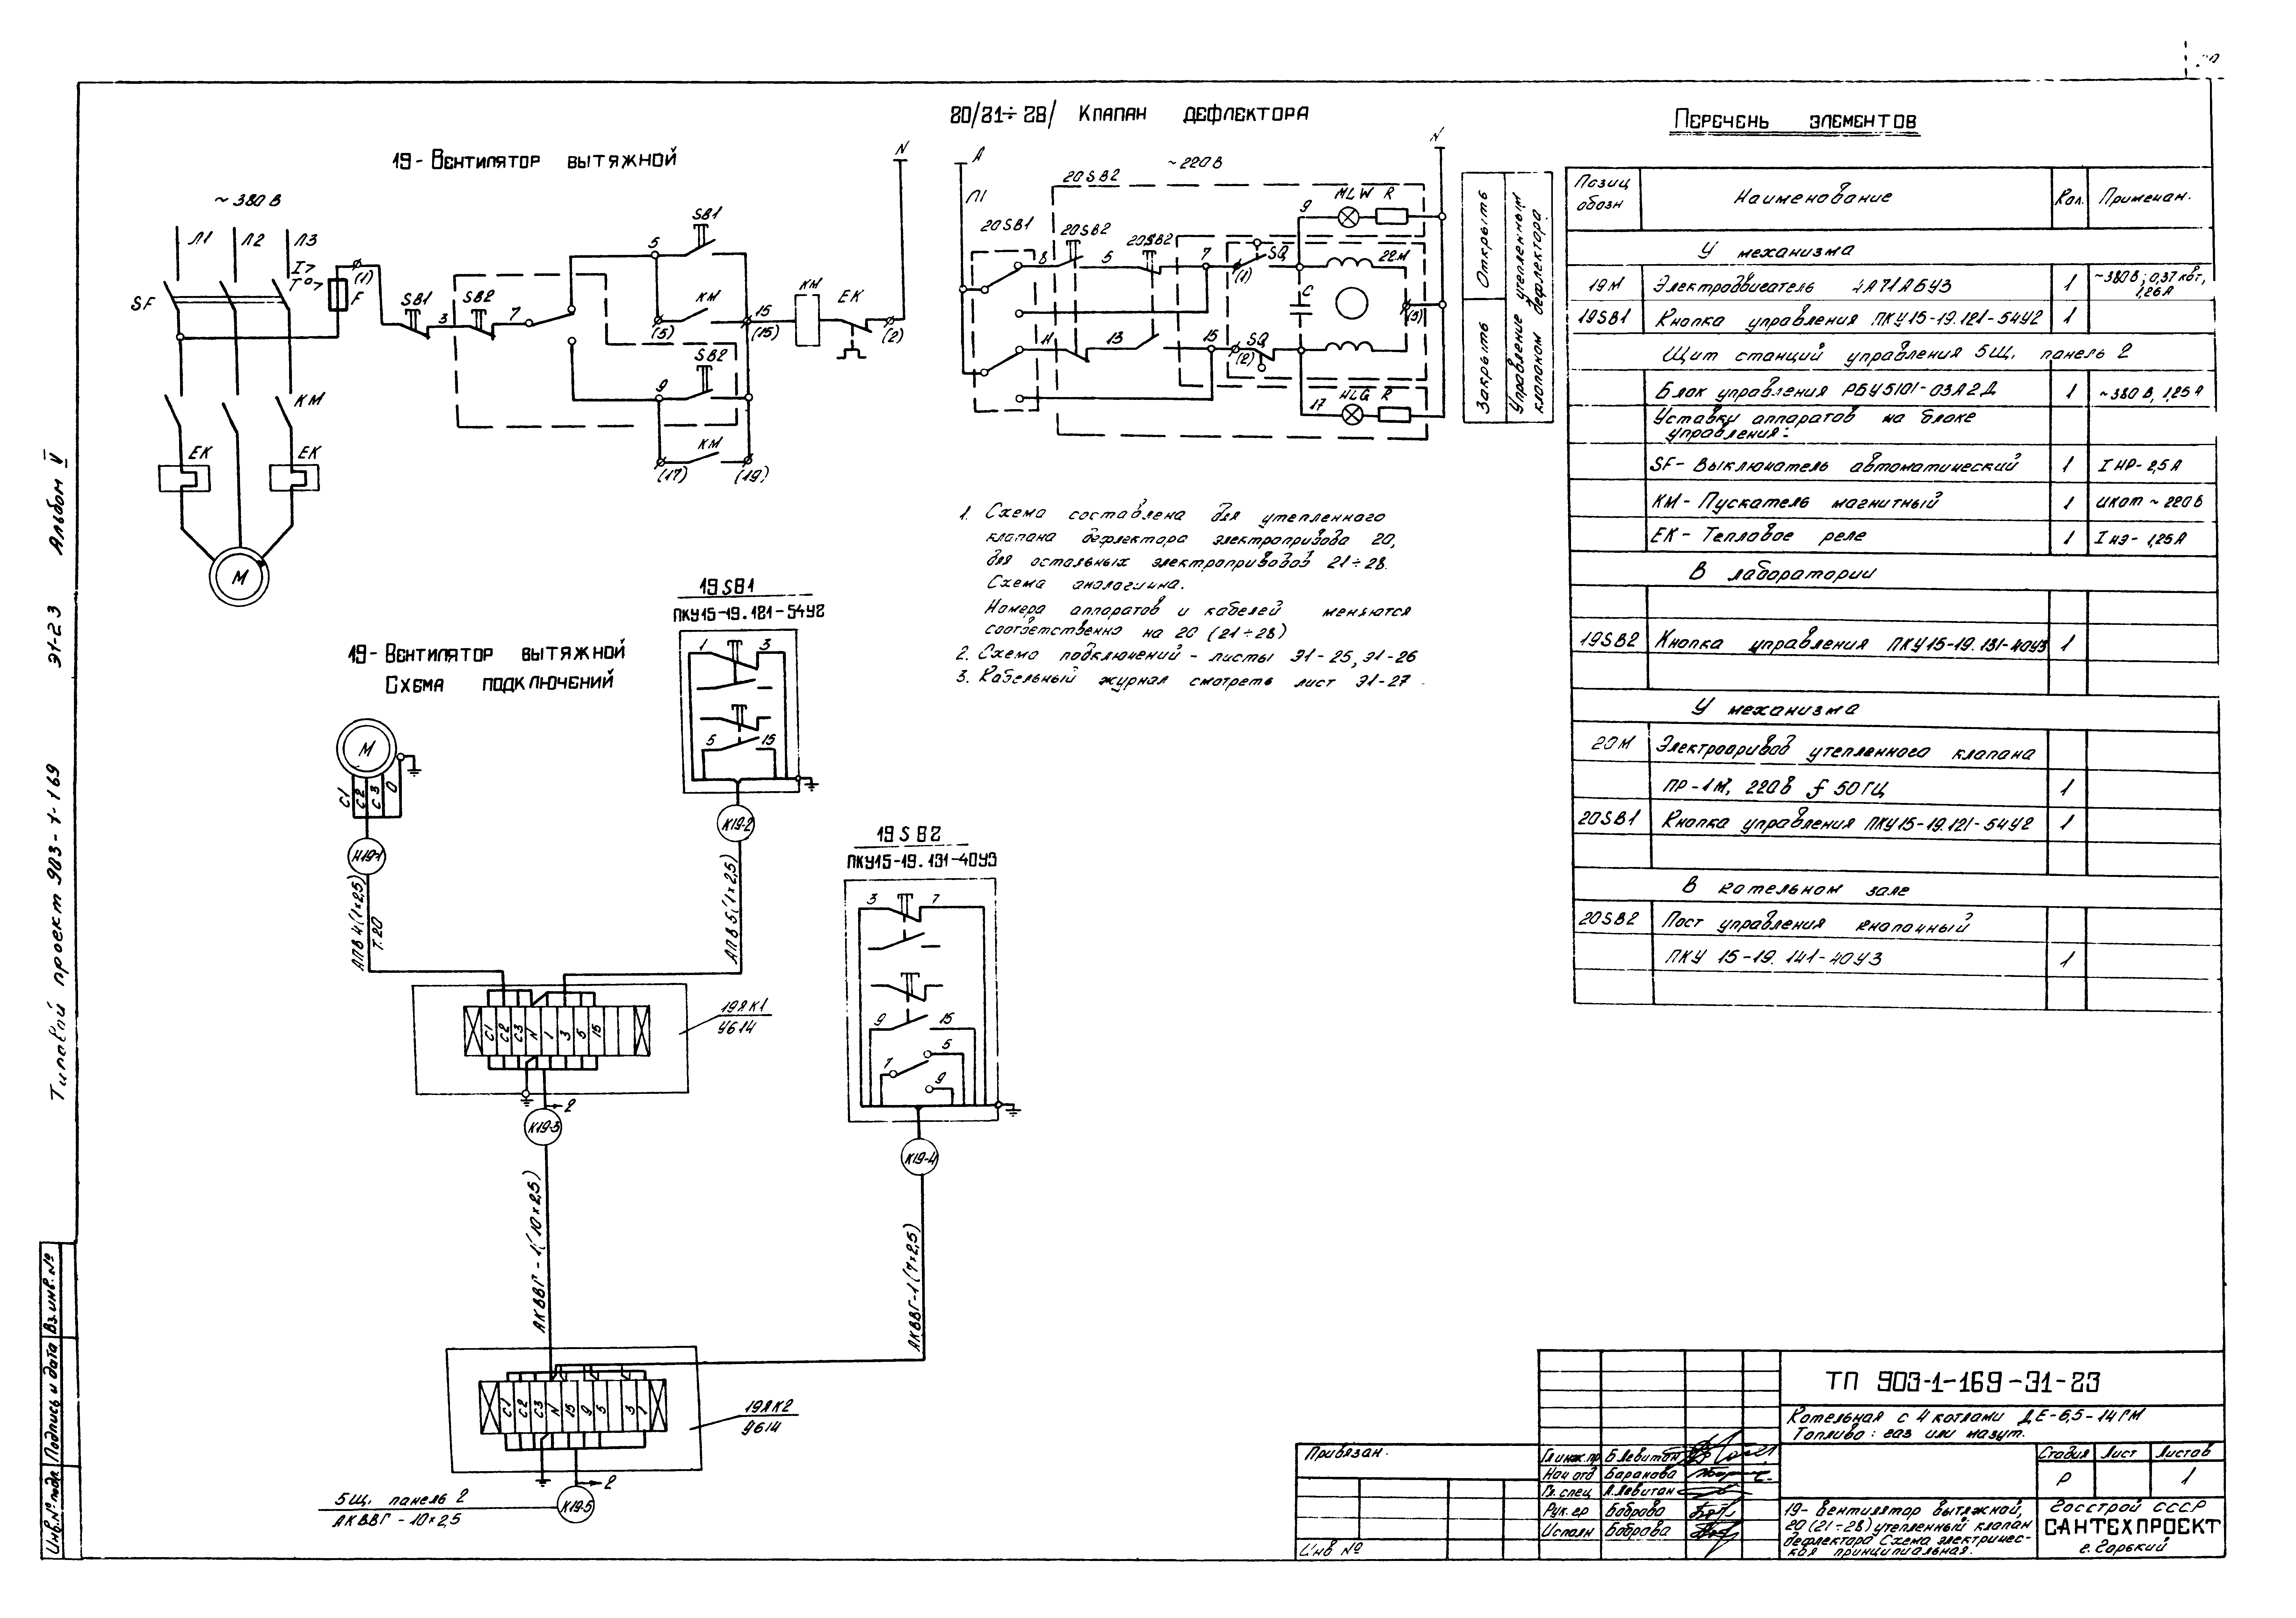 20/21÷28/ Клапан дефлектора
19- Вентилятор вытяжной
~ 380 В
Л1 Л2 Л3
I> T°>
SF
F
(1)
SB1
3
SB2
7
5
SB1
KM
(5)
15
(15)
KM
EK
(2)
N
9
SB2
KM
(17)
(19)
KM
EK
EK
M
A
N
Л1
20SB2
~220 В
20SB1
8
20SB2
5
20SB2
7
(1)
SQ
9
HLW R
22М
C
(3)
11
13
15
(2)
SQ
17
HLG R
Открыть
Закрыть
Управление утепленным
клапаном дефлектора
1. Схема составлена для утепленного
клапана дефлектора электропривода 20,
для остальных электроприводов 21÷28.
Схема аналогична.
Номера аппаратов и кабелей меняются
соответственно на 20 (21÷28)
2. Схема подключений - листы Э1-25, Э1-26
3. Кабельный журнал смотреть лист Э1-27.
Перечень элементов
Позиц обозн
Наименование
Кол.
Примечан.
У механизма
19М Электродвигатель 4А71А6У3 1 ~380 В; 0,37 кВт, 1,26 А
19SB1 Кнопка управления ПКУ15-19.121-54У2 1
Щит станций управления 5Щ. панель 2
Блок управления РБУ5101-03А2Д 1 ~380 В, 1,25 А
Уставки аппаратов на блоке
управления:
SF- Выключатель автоматический 1 I нр- 2,5 А
КМ- Пускатель магнитный 1 Uкат ~ 220 В
ЕК- Тепловое реле 1 I нэ- 1,25 А
В лаборатории
19SB2 Кнопка управления ПКУ15-19.131-40У3 1
У механизма
20М Электропривод утепленного клапана
ПР-1М, 220 В f 50 ГЦ 1
20SB1 Кнопка управления ПКУ15-19.121-54У2 1
В котельном зале
20SB2 Пост управления кнопочный
ПКУ 15-19. 141-40У3 1
19- Вентилятор вытяжной
Схема подключений
M
C1
C2
C3
0
Н19-1
АПВ 4(1×2,5)
Т.20
19SB1
ПКУ15-19.121-54У2
1 3
5 15
К19-2
АПВ 5(1×2,5)
19SB2
ПКУ15-19.131-40У3
3 7
9 15
7
5
9
К19-4
АКВВГ-1(7×2,5)
C1 C2 C3 N 1 3 5 15
19ЯК1
У614
2
К19-3
АКВВГ-1(10×2,5)
C1 C2 C3 N 15 9 5 3 1
19ЯК2
У614
2
К19-5
5Щ. панель 2
АКВВГ-10×2,5
Типовой проект 903-1-169 Э1-23 Альбом V
Инв.№ подл. Подпись и дата Вз.инв.№
ТП 903-1-169-Э1-23
Котельная с 4 котлами ДЕ-6,5-14ГМ
Топливо: газ или мазут.
Привязан.
Инв №
Гл.инж.пр Б.Левитан
Нач отд Баранова
Гл. спец А.Левитан
Рук. гр Боброва
Исполн Боброва
Стадия Лист Листов
Р 1
19- Вентилятор вытяжной,
20(21÷28) утепленный клапан
дефлектора Схема электричес-
кая принципиальная.
Госстрой СССР
САНТЕХПРОЕКТ
г. Горький